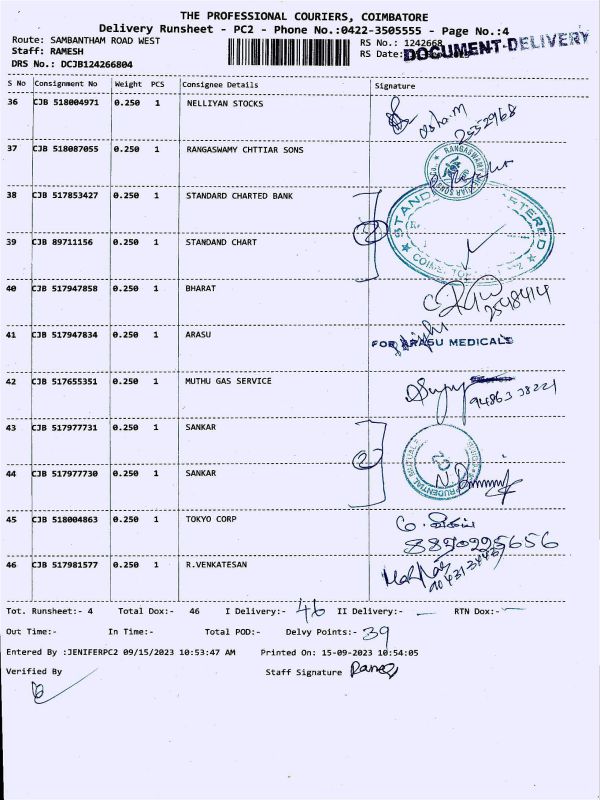 THE PROFESSIONAL COURIERS, COIMBATORE
Delivery Runsheet - PC2 - Phone No.:0422-3505555 - Page No.:4
Route: SAMBANTHAM ROAD WEST RS No.: 1242668
DOCUMENT-DELIVERY
Staff: RAMESH RS Date:
DRS No.: DCJB124266804
S No Consignment No Weight PCS Consignee Details Signature
36 CJB 518004971 0.250 1 NELLIYAN STOCKS
Asha.M
2552968
37 CJB 518087055 0.250 1 RANGASWAMY CHTTIAR SONS
38 CJB 517853427 0.250 1 STANDARD CHARTED BANK
39 CJB 89711156 0.250 1 STANDAND CHART
2
40 CJB 517947858 0.250 1 BHARAT
2548414
41 CJB 517947834 0.250 1 ARASU
FOR ARASU MEDICALS
42 CJB 517655351 0.250 1 MUTHU GAS SERVICE
43 CJB 517977731 0.250 1 SANKAR
44 CJB 517977730 0.250 1 SANKAR
2
45 CJB 518004863 0.250 1 TOKYO CORP
8890995656
46 CJB 517981577 0.250 1 R.VENKATESAN
Tot. Runsheet:- 4 Total Dox:- 46 I Delivery:- 46 II Delivery:- — RTN Dox:- —
Out Time:- In Time:- Total POD:- Delvy Points:- 39
Entered By :JENIFERPC2 09/15/2023 10:53:47 AM Printed On: 15-09-2023 10:54:05
Verified By Staff Signature